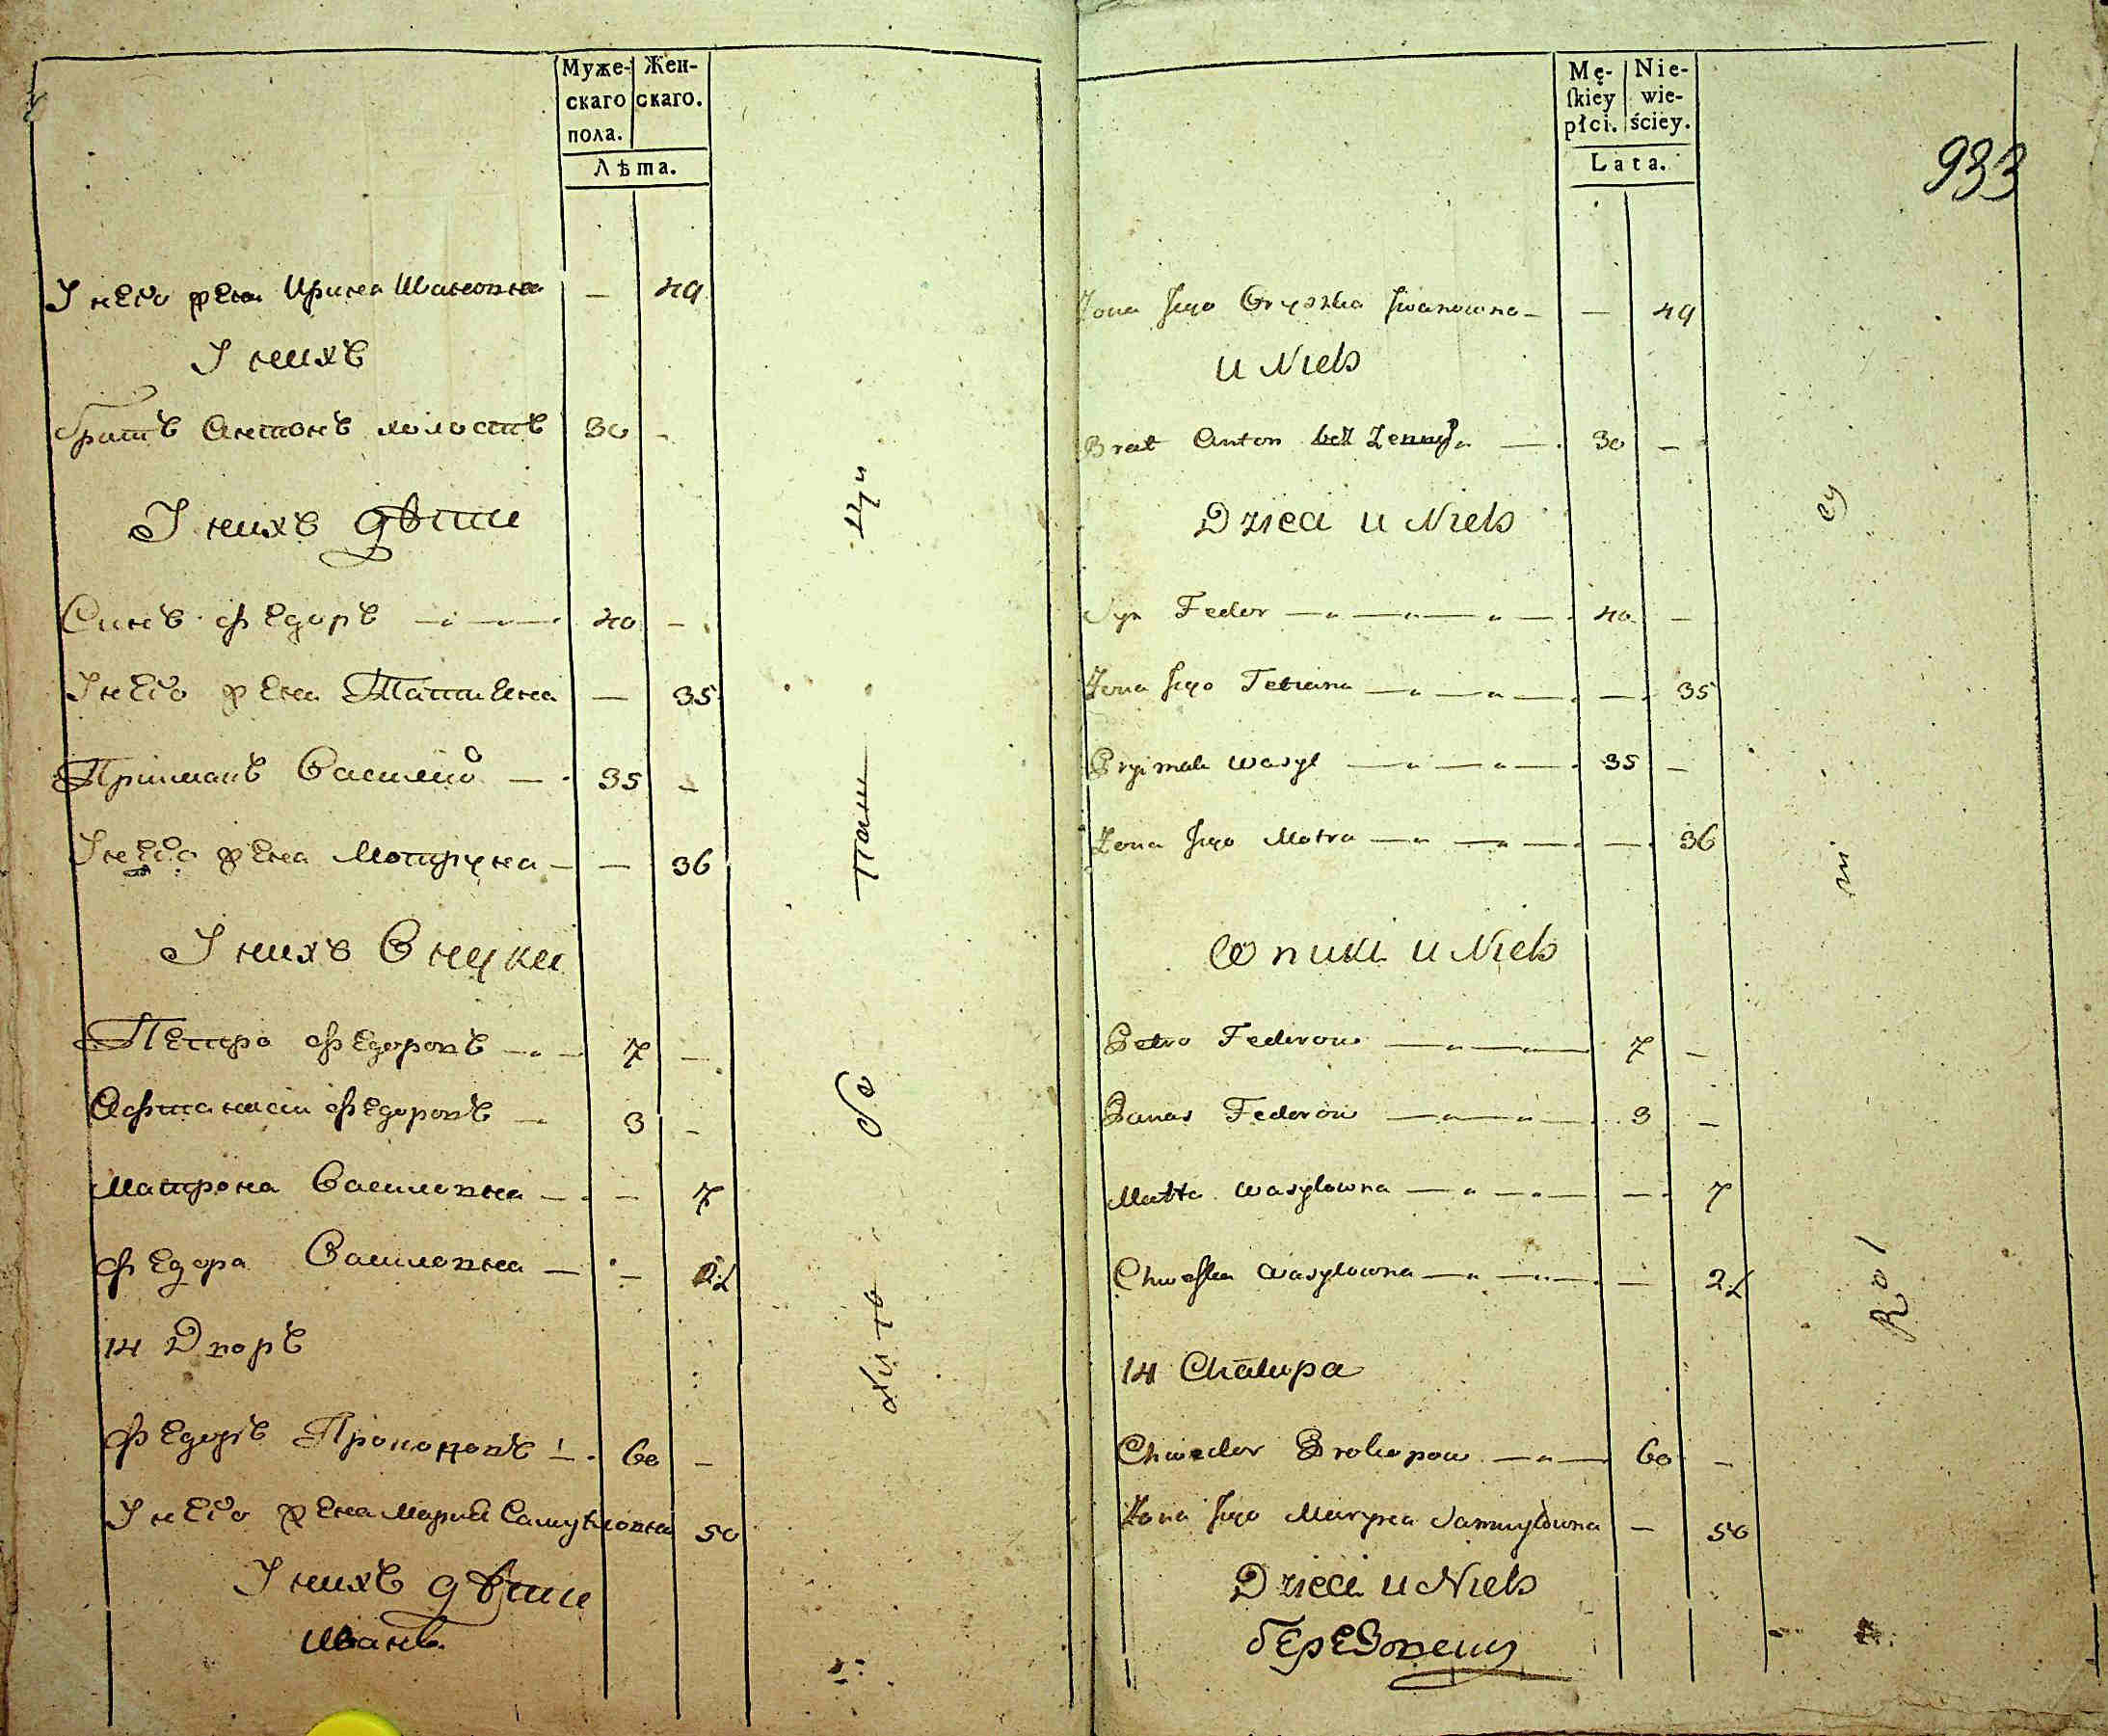 Муже-
скаго
пола.
Жен-
скаго.
Лѣта.
У него жена Ирина Иванонна
— 49
У нихъ
братъ Антонъ холостъ 30 -
У нихъ дѣти
Синъ Федоръ 40 -
У него жена Татиена — 35
Приимакъ Василий 35 -
У него жена Мотруна — 36
У нихъ Внуки
Петро Федоровъ 7 —
Афтанаси Федоровъ 3 -
Матрона Василовна — 7
Федора Василовна — 2½
14 Дворъ
Федоръ Прокоповъ 60 -
У него жена Мария Самуйловна 50
У нихъ дѣти
Иванъ
Mę-
skiey
płci.
Nie-
wie-
ściey.
Lata.
933
Żona Jego Oryszka Jwanowna — 49
u Nich
Brat Anton bez Żenny 30 —
Dzieci u Nich
Syn Fedor 40 —
Żona Jego Tetiana — 35
Pryimak Wasyl 35 —
Żona Jego Motra — 36
Wnuki u Nich
Petro Fedorow 7 —
Panas Fedorow 3 —
Wasylowna — 7
Chweska Wasylowna — 2½
14 Chałupa
Chwedor Prokopow 60 —
Żona Jego Maryna Samuylowna — 50
Dzieci u Nich
Березовецъ